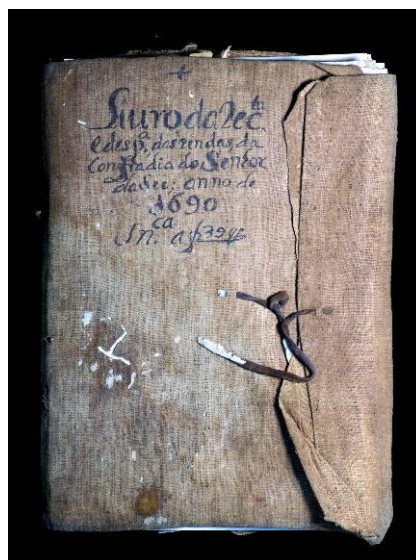 +
Liuro da Rec.ta
e desp.ª das rendas da
Confradia do Senhor
da See; anno de
1690